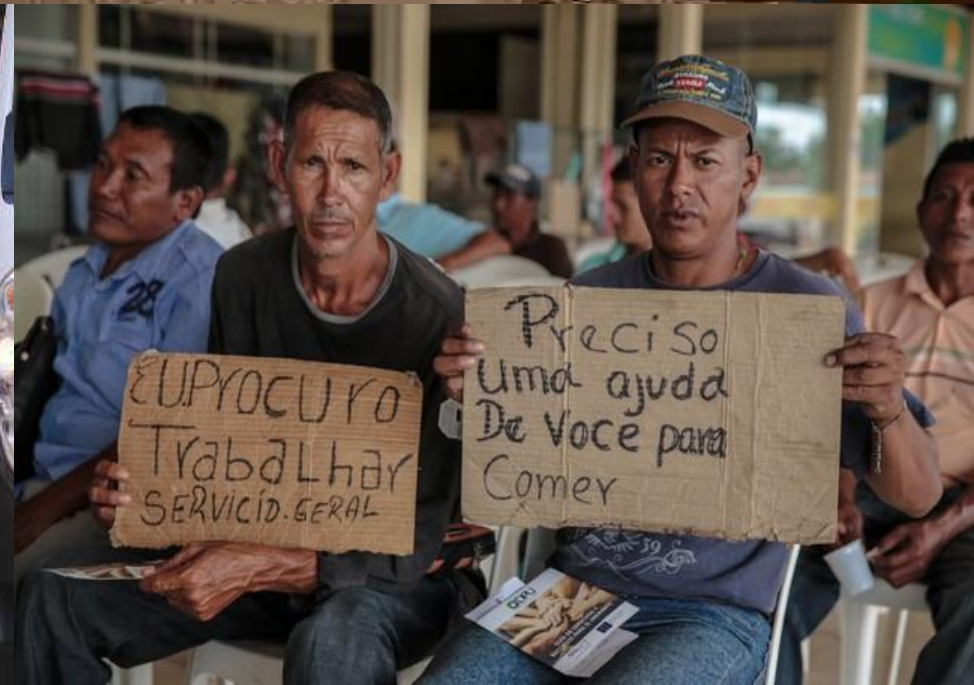 EU.Procuro
Trabalhar
SERVICIO.GERAL
Preciso
uma ajuda
De Voce para
Comer
28